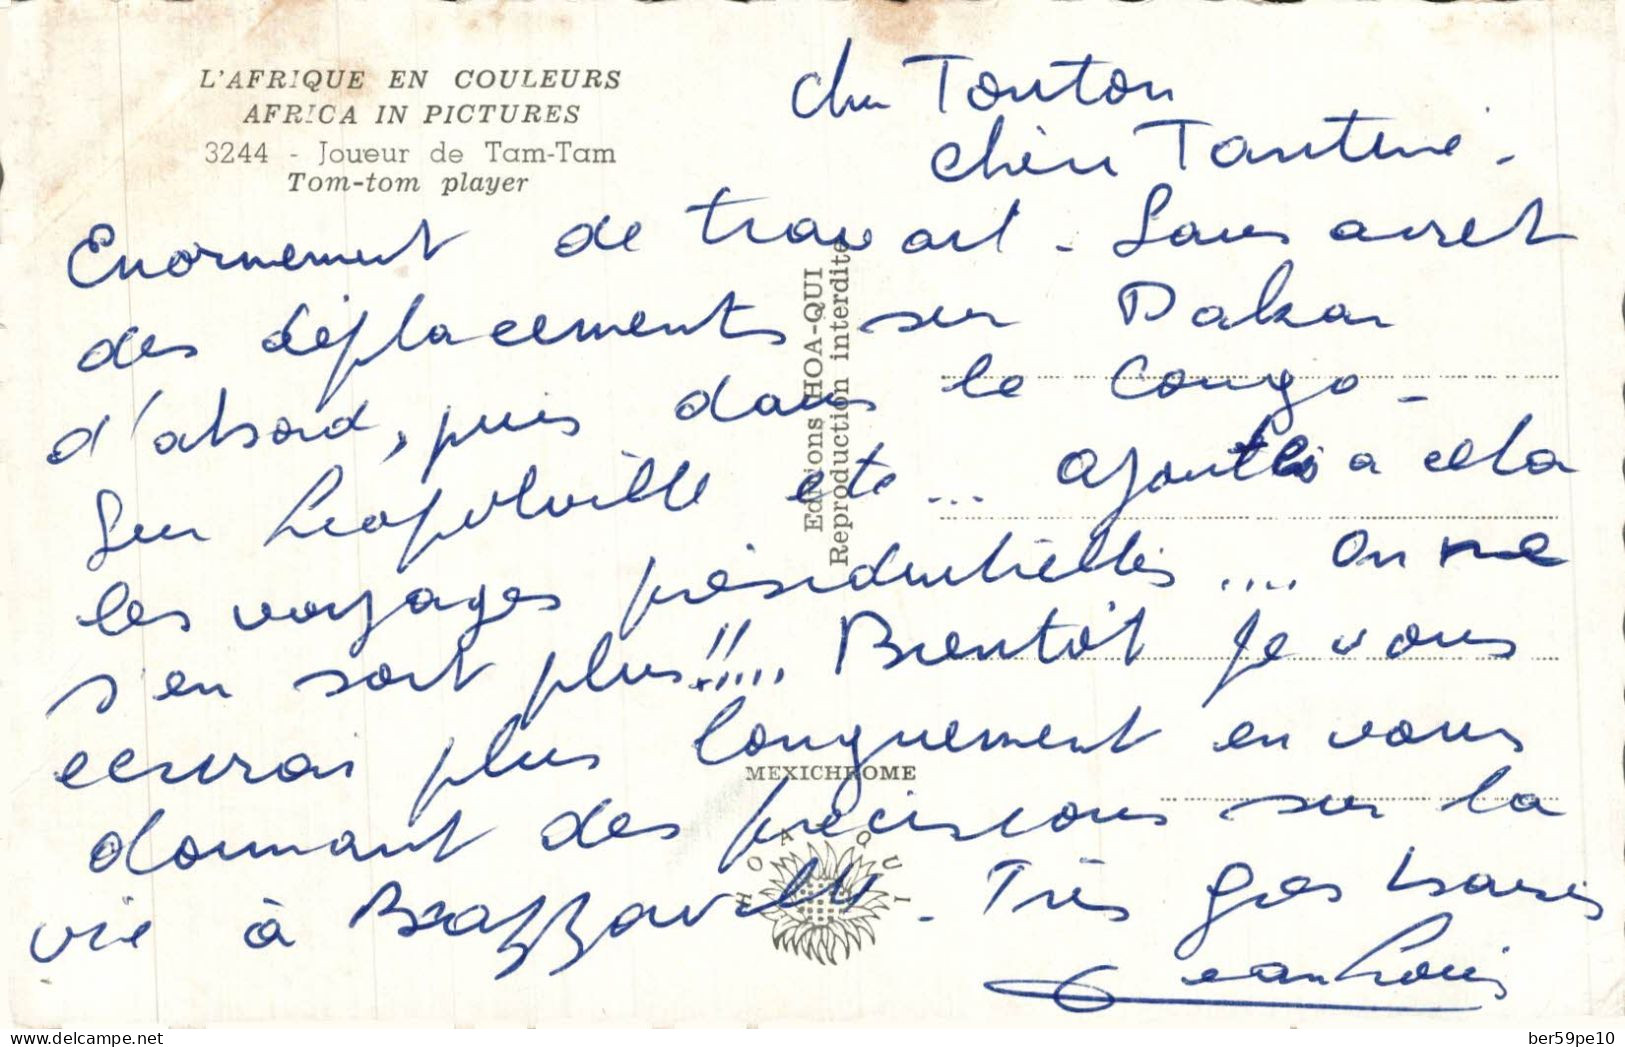 L'AFRIQUE EN COULEURS
AFRICA IN PICTURES
3244 - Joueur de Tam-Tam
Tom-tom player
Cher Tonton
chère Tantine.
Enormement de travail - Sans arret
des déplacements sur Dakar
d'abord, puis dans le Congo -
Sur Léopolville etc ... ajoutés a cela
les voyages présidentielles .... On ne
s'en sort plus!!.... Bientôt je vous
ecrirai plus longuement en vous
donnant des précisions sur la
vie à Brazzaville. Très gros baisers
Jean Louis
Editions HOA-QUI
Reproduction interdite
MEXICHROME
HOA-QUI
delcampe.net
ber59pe10